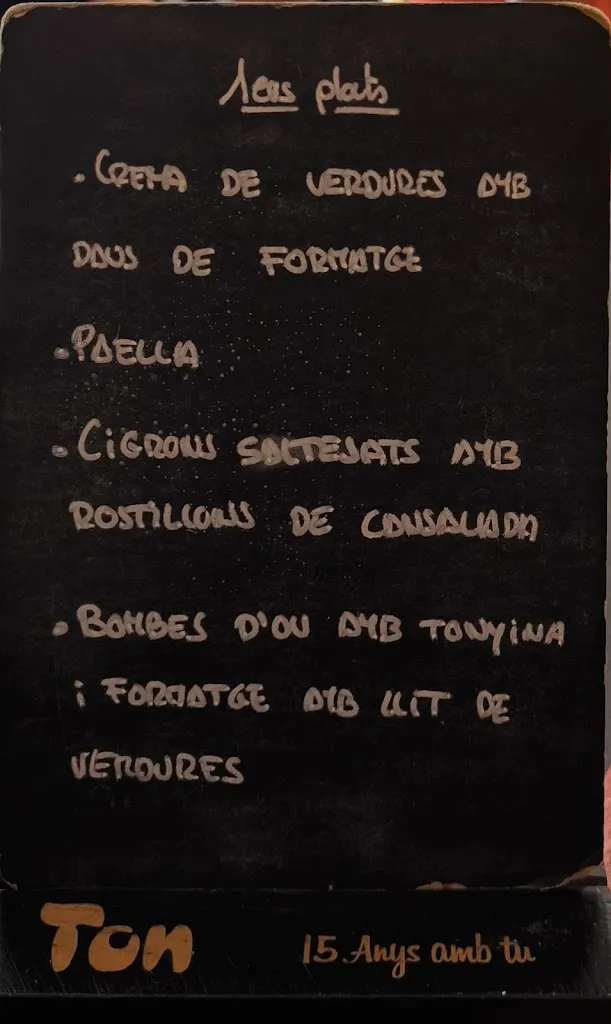 1ers plats
• CREMA DE VERDURES AMB
DAUS DE FORMATGE
• PAELLA
• CIGRONS SALTEJATS AMB
ROSTILLONS DE CANSALADA
• BOMBES D'OU AMB TONYINA
i FORMATGE AMB LLIT DE
VERDURES
Ton 15 Anys amb tu